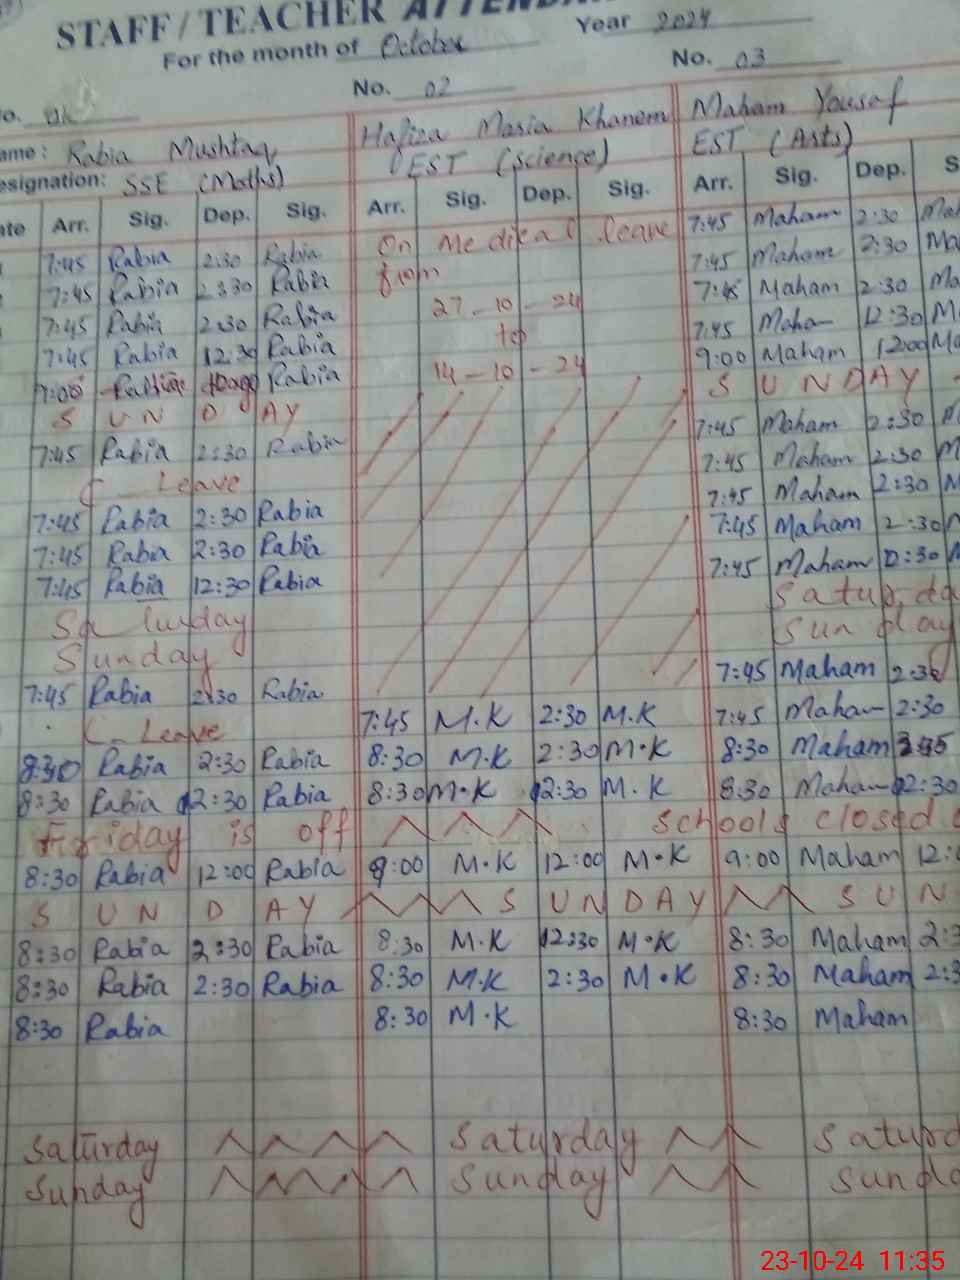 STAFF / TEACHER ATTENDA
For the month of October Year 2024
No. No. 02 No. 03
ame: Rabia Mushtaq Hafiza Masia Khanem Maham Yousaf
esignation: SSE (Maths) EST (Science) EST (Arts)
ate Arr. Sig. Dep. Sig. Arr. Sig. Dep. Sig. Arr. Sig. Dep. S
7:45 Rabia 2:30 Rabia On Medical leave 7:45 Maham 2:30
7:45 Rabia 2:30 Rabia from 7:45 Maham 2:30
7:45 Rabia 2:30 Rabia 27-10-24 7:45 Maham 2:30
7:45 Rabia 12:30 Rabia to 7:45 Maham 12:30
Rabia 14-10-24 9:00 Maham 12:00
SUNDAY SUNDAY
7:45 Rabia 2:30 Rabia 7:45 Maham 2:30
C Leave 7:45 Maham 2:30
7:45 Rabia 2:30 Rabia 7:45 Maham 2:30
7:45 Rabia 2:30 Rabia 7:45 Maham 2:30
7:45 Rabia 12:30 Rabia 7:45 Maham 12:30
Saturday Saturda
Sunday Sunday
7:45 Rabia 2:30 Rabia 7:45 Maham 2:30
C- Leave 7:45 M.K 2:30 M.K 7:45 Maham 2:30
8:30 Rabia 2:30 Rabia 8:30 M.K 2:30 M.K 8:30 Maham
8:30 Rabia 12:30 Rabia 8:30 M.K 12:30 M.K 8:30 Maham 12:30
Friday is off schools closed
8:30 Rabia 12:00 Rabia 9:00 M.K 12:00 M.K 9:00 Maham 12:
SUNDAY SUNDAY SUN
8:30 Rabia 2:30 Rabia 8:30 M.K 12:30 M.K 8:30 Maham 2:3
8:30 Rabia 2:30 Rabia 8:30 M.K 2:30 M.K 8:30 Maham 2:3
8:30 Rabia 8:30 M.K 8:30 Maham
Saturday Saturday Saturd
Sunday Sunday Sunda
23-10-24 11:35